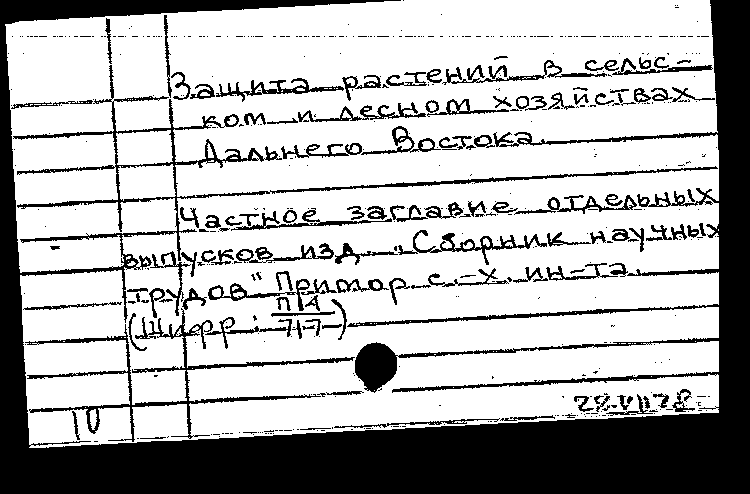 Защита растений в сельс-
ком и лесном хозяйствах
Дальнего Востока.
Частное заглавие отдельных
выпусков изд. „Сборник научных
трудов" Примор. с.-х. ин-та.
(Шифр: П14/717)
10